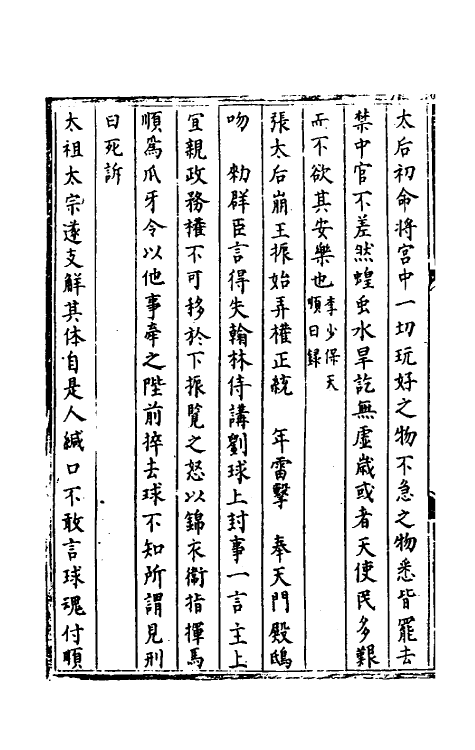 太后初命將宫中一切玩好之物不急之物悉皆罷去
禁中官不差然蝗虫水旱訖無虚歲或者天使民多艱
而不欲其安樂也李少保天順日錄
張太后崩王振始弄權正統　年雷擊　奉天門殿鴟
吻　勑群臣言得失翰林侍講劉球上封事一言主上
宜親政務權不可移於下振覧之怒以錦衣衞指揮馬
順爲爪牙令以他事牽之陛前捽去球不知所謂見刑
曰死訴
太祖太宗遂支解其体自是人緘口不敢言球魂付順